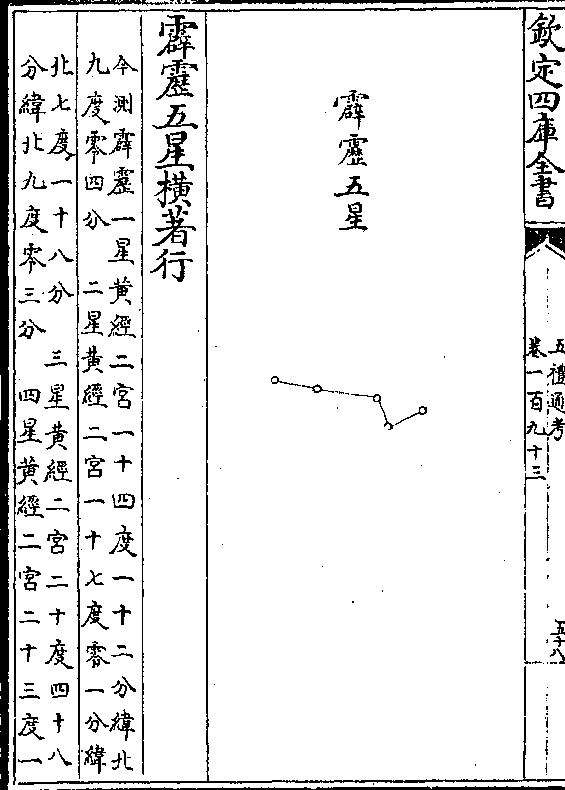 欽定四庫全書
五禮通考
卷一百九十三
五十八
霹靂五星
霹靂五星橫著行
今測霹靂一星黄經二宮一十四度一十二分緯北
九度零四分　二星黄經二宮一十七度零一分緯
北七度一十八分　三星黄經二宮二十度四十八
分緯北九度零三分　四星黄經二宮二十三度一